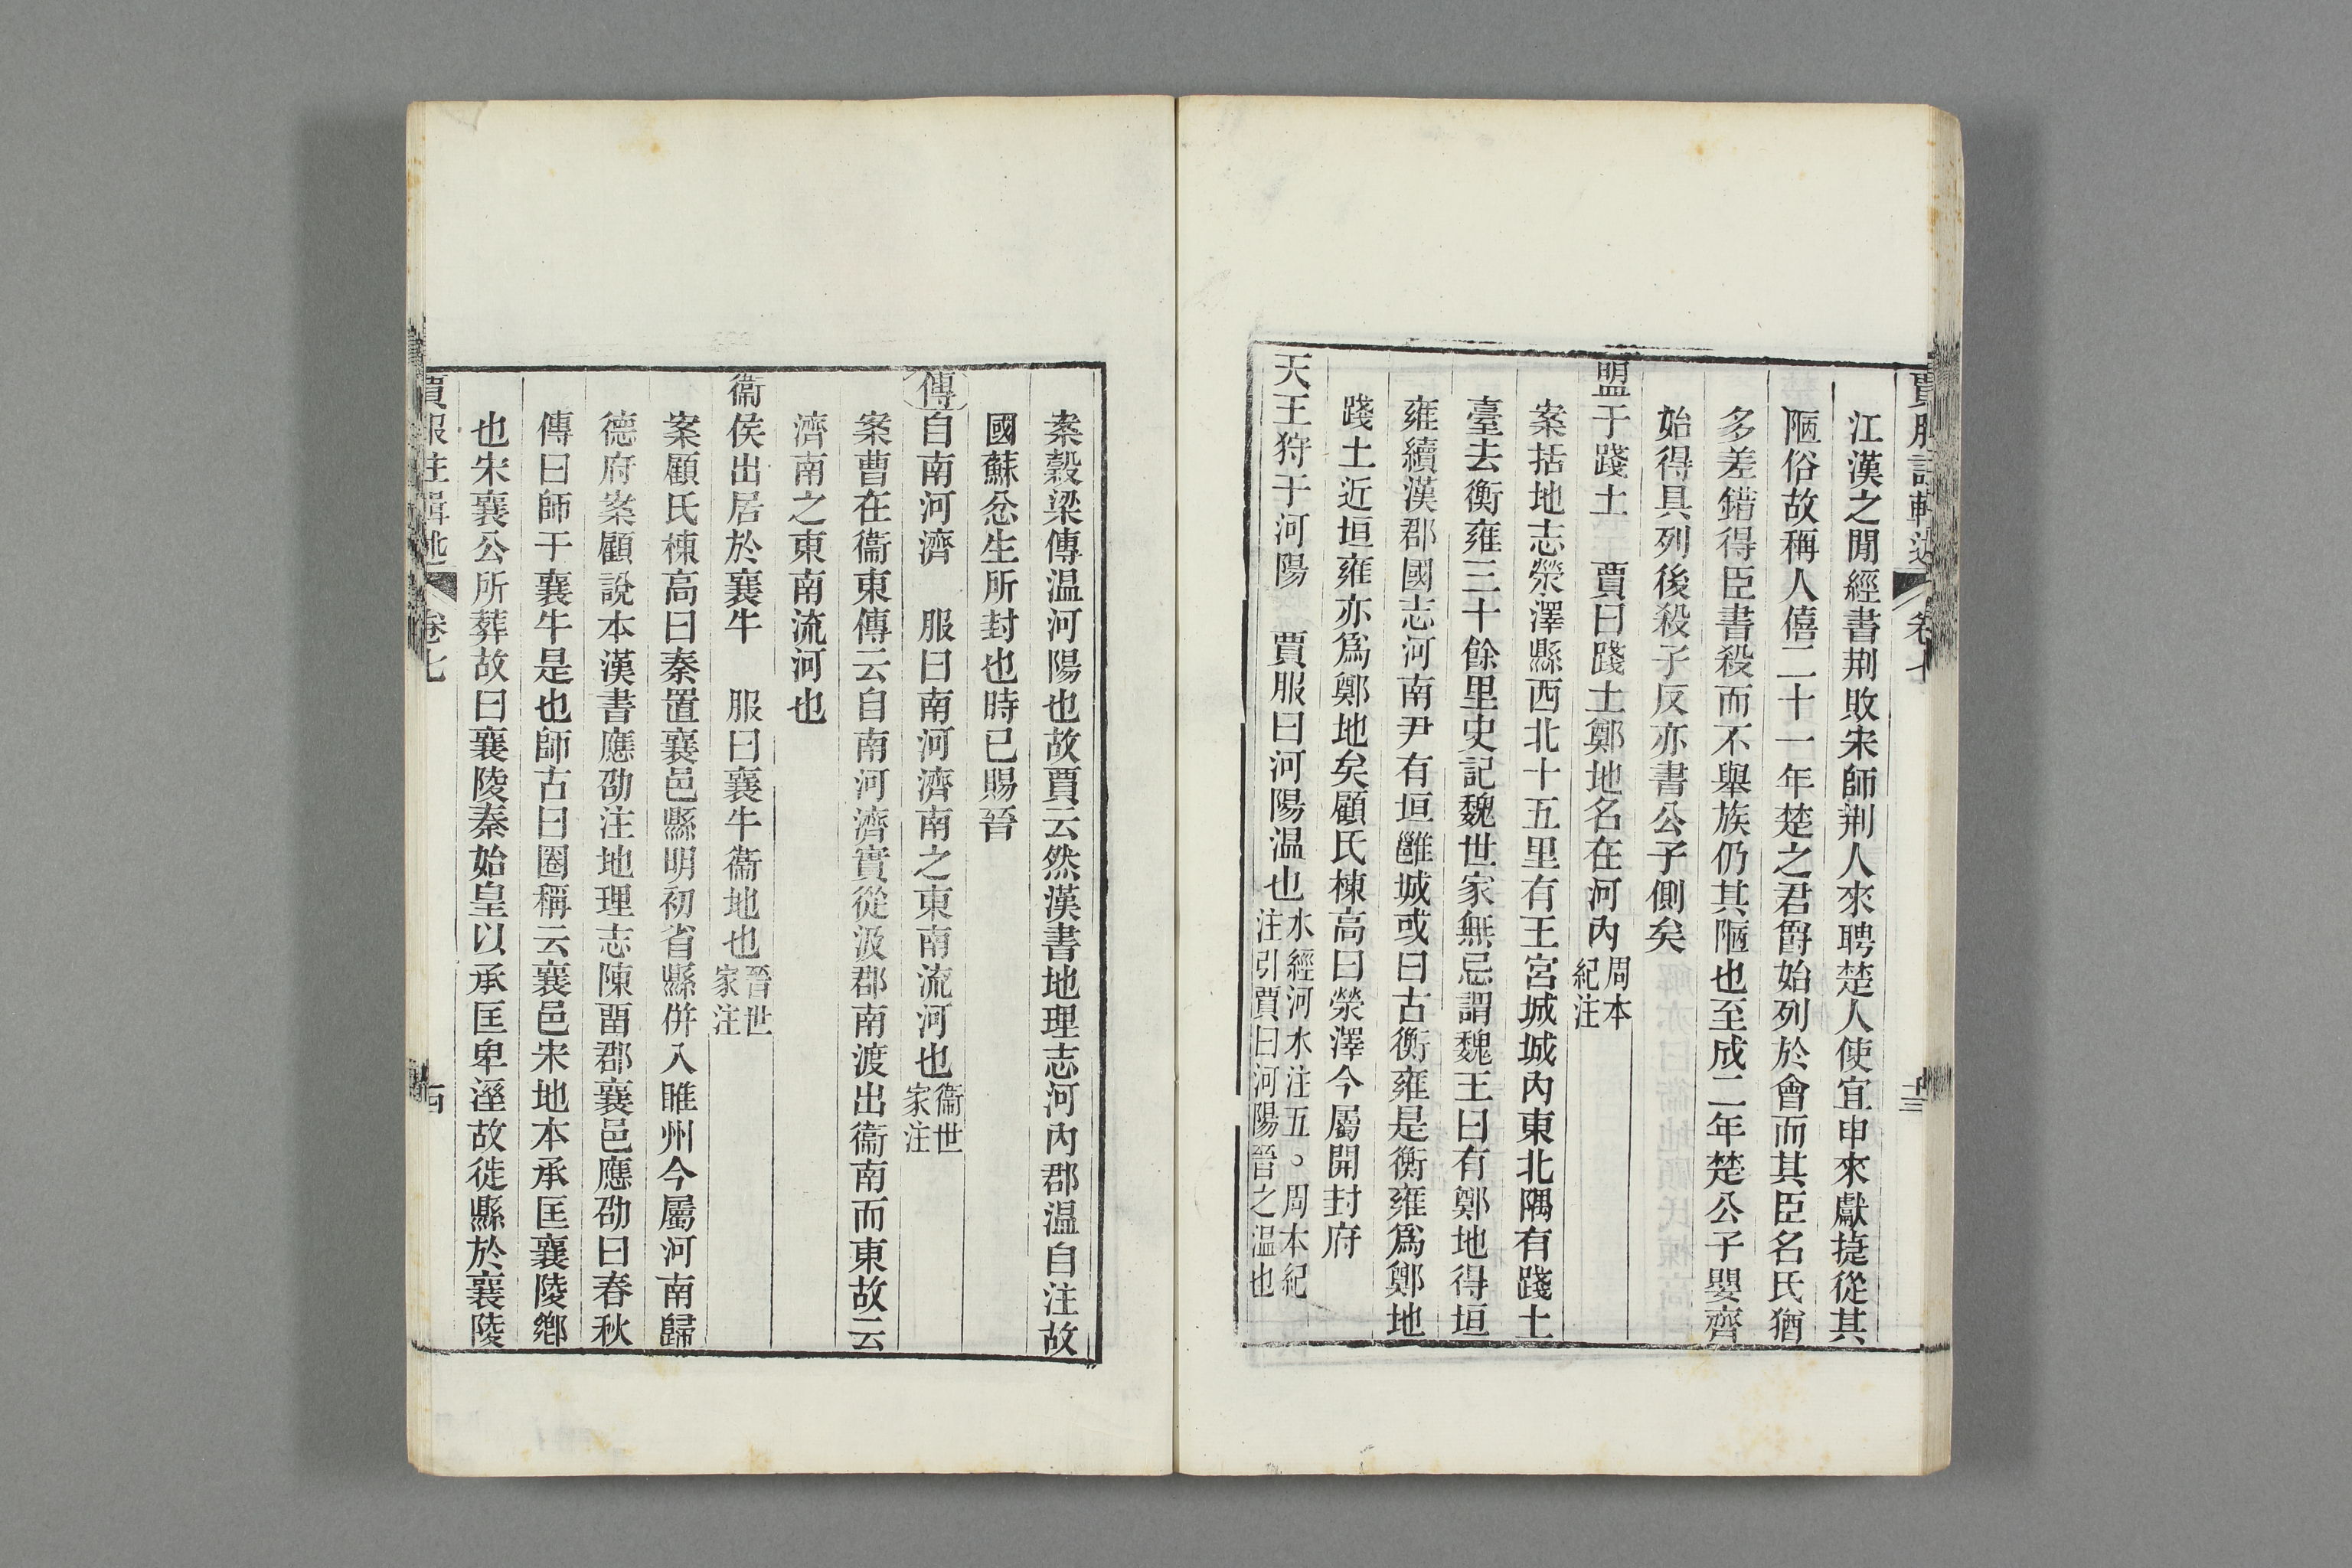 江漢之間經書荆敗宋師荆人來聘楚人使宜申來獻捷從其
陋俗故稱人僖二十一年楚之君爵始列於會而其臣名氏猶
多差錯得臣書殺而不舉族仍其陋也至成二年楚公子嬰齊
始得具列後殺子反亦書公子側矣
盟于踐土　賈曰踐土鄭地名在河內周本紀注
案括地志滎澤縣西北十五里有王宮城城內東北隅有踐土
臺去衡雍三十餘里史記魏世家無忌謂魏王曰有鄭地得垣
雍續漢郡國志河南尹有垣雝城或曰古衡雍是衡雍爲鄭地
踐土近垣雍亦爲鄭地矣顧氏棟高曰滎澤今屬開封府
天王狩于河陽　賈服曰河陽温也水經河水注五。周本紀注引賈曰河陽晉之温也
案穀梁傳温河陽也故賈云然漢書地理志河內郡温自注故
國蘇忿生所封也時已賜晉
傳自南河濟　服曰南河濟南之東南流河也衞世家注
案曹在衞東傳云自南河濟實從汲郡南渡出衞南而東故云
濟南之東南流河也
衞侯出居於襄牛　服曰襄牛衞地也晉世家注
案顧氏棟高曰秦置襄邑縣明初省縣倂入睢州今屬河南歸
德府案顧說本漢書應劭注地理志陳畱郡襄邑應劭曰春秋
傳曰師于襄牛是也師古曰圈稱云襄邑宋地本承匡襄陵鄉
也宋襄公所葬故曰襄陵秦始皇以承匡卑溼故徙縣於襄陵
賈服注輯述　卷七　十四